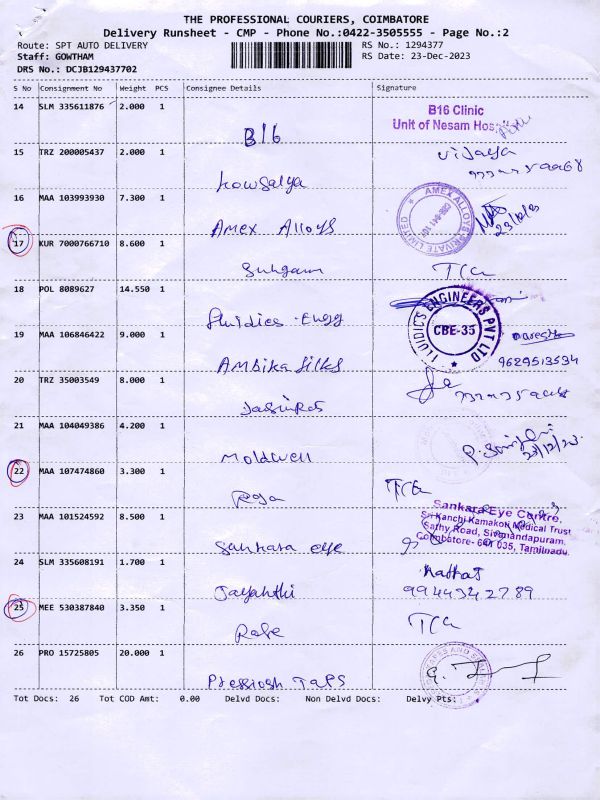 THE PROFESSIONAL COURIERS, COIMBATORE
Delivery Runsheet - CMP - Phone No.:0422-3505555 - Page No.:2
Route: SPT AUTO DELIVERY RS No.: 1294377
Staff: GOWTHAM RS Date: 23-Dec-2023
DRS No.: DCJB129437702
S No Consignment No Weight PCS Consignee Details Signature
14 SLM 335611876 2.000 1
B16 Clinic
Unit of Nesam Hos
B16
15 TRZ 200005437 2.000 1
vijaya
kowsalya
16 MAA 103993930 7.300 1
AMEX ALLOYS PRIVATE LIMITED
23/12/23
Amex Alloys
17 KUR 7000766710 8.600 1
Suhgam
18 POL 8089627 14.550 1
FLUIDICS ENGINEERS PVT LTD
CBE-35
fluidics Engg
19 MAA 106846422 9.000 1
9629513534
Ambika Silks
20 TRZ 35003549 8.000 1
21 MAA 104049386 4.200 1
23/12/23
Moldwell
22 MAA 107474860 3.300 1
Roja
23 MAA 101524592 8.500 1
Sankara Eye Centre,
Sri Kanchi Kamakoti Medical Trust
Sathy Road, Sivanandapuram,
Coimbatore- 641 035, Tamilnadu.
Sankara eye
24 SLM 335608191 1.700 1
9944942789
Jayanthi
25 MEE 530387840 3.350 1
26 PRO 15725805 20.000 1
Tot Docs: 26 Tot COD Amt: 0.00 Delvd Docs: Non Delvd Docs: Delvy Pts: